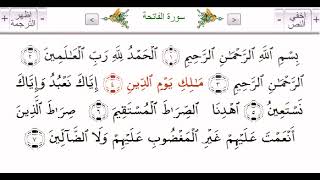 إخفي النص
< سورة الفاتحة >
تظهر الترجمة
بِسْمِ ٱللَّهِ ٱلرَّحْمَٰنِ ٱلرَّحِيمِ ۝١ ٱلْحَمْدُ لِلَّهِ رَبِّ ٱلْعَالَمِينَ ۝٢
ٱلرَّحْمَٰنِ ٱلرَّحِيمِ ۝٣ مَالِكِ يَوْمِ ٱلدِّينِ ۝٤ إِيَّاكَ نَعْبُدُ وَإِيَّاكَ
نَسْتَعِينُ ۝٥ ٱهْدِنَا ٱلصِّرَاطَ ٱلْمُسْتَقِيمَ ۝٦ صِرَاطَ ٱلَّذِينَ
أَنْعَمْتَ عَلَيْهِمْ غَيْرِ ٱلْمَغْضُوبِ عَلَيْهِمْ وَلَا ٱلضَّآلِّينَ ۝٧